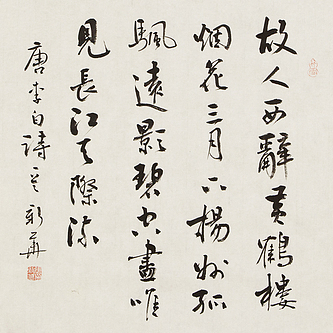 故人西辭黃鶴樓
烟花三月下揚州孤
颿遠影碧空盡唯
見長江天際流
唐李白詩